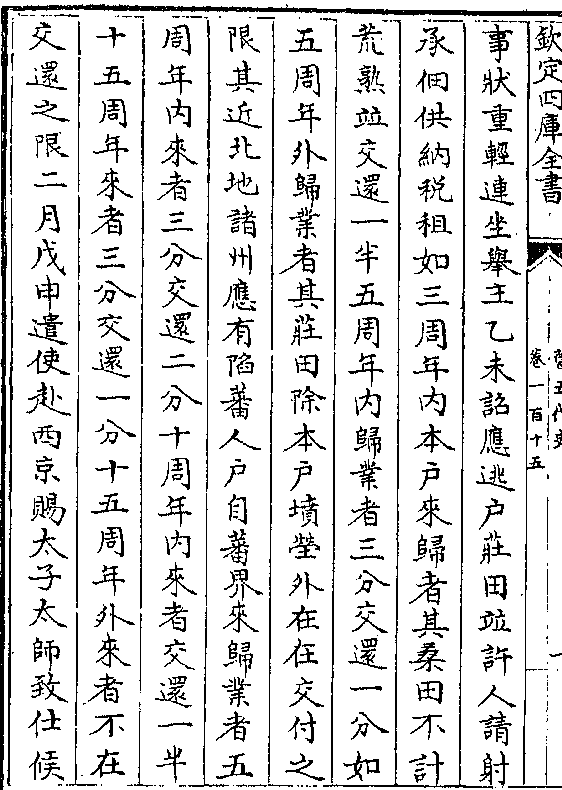 欽定四庫全書
舊五代史
卷一百十五
事狀重輕連坐舉主乙未詔應逃户莊田竝許人請射
承佃供納税租如三周年内本户來歸者其桑田不計
荒熟竝交還一半五周年内歸業者三分交還一分如
五周年外歸業者其莊田除本户墳塋外不在交付之
限其近北地諸州應有陷蕃人户自蕃界來歸業者五
周年内來者三分交還二分十周年内來者交還一半
十五周年來者三分交還一分十五周年外來者不在
交還之限二月戊申遣使赴西京賜太子太師致仕侯